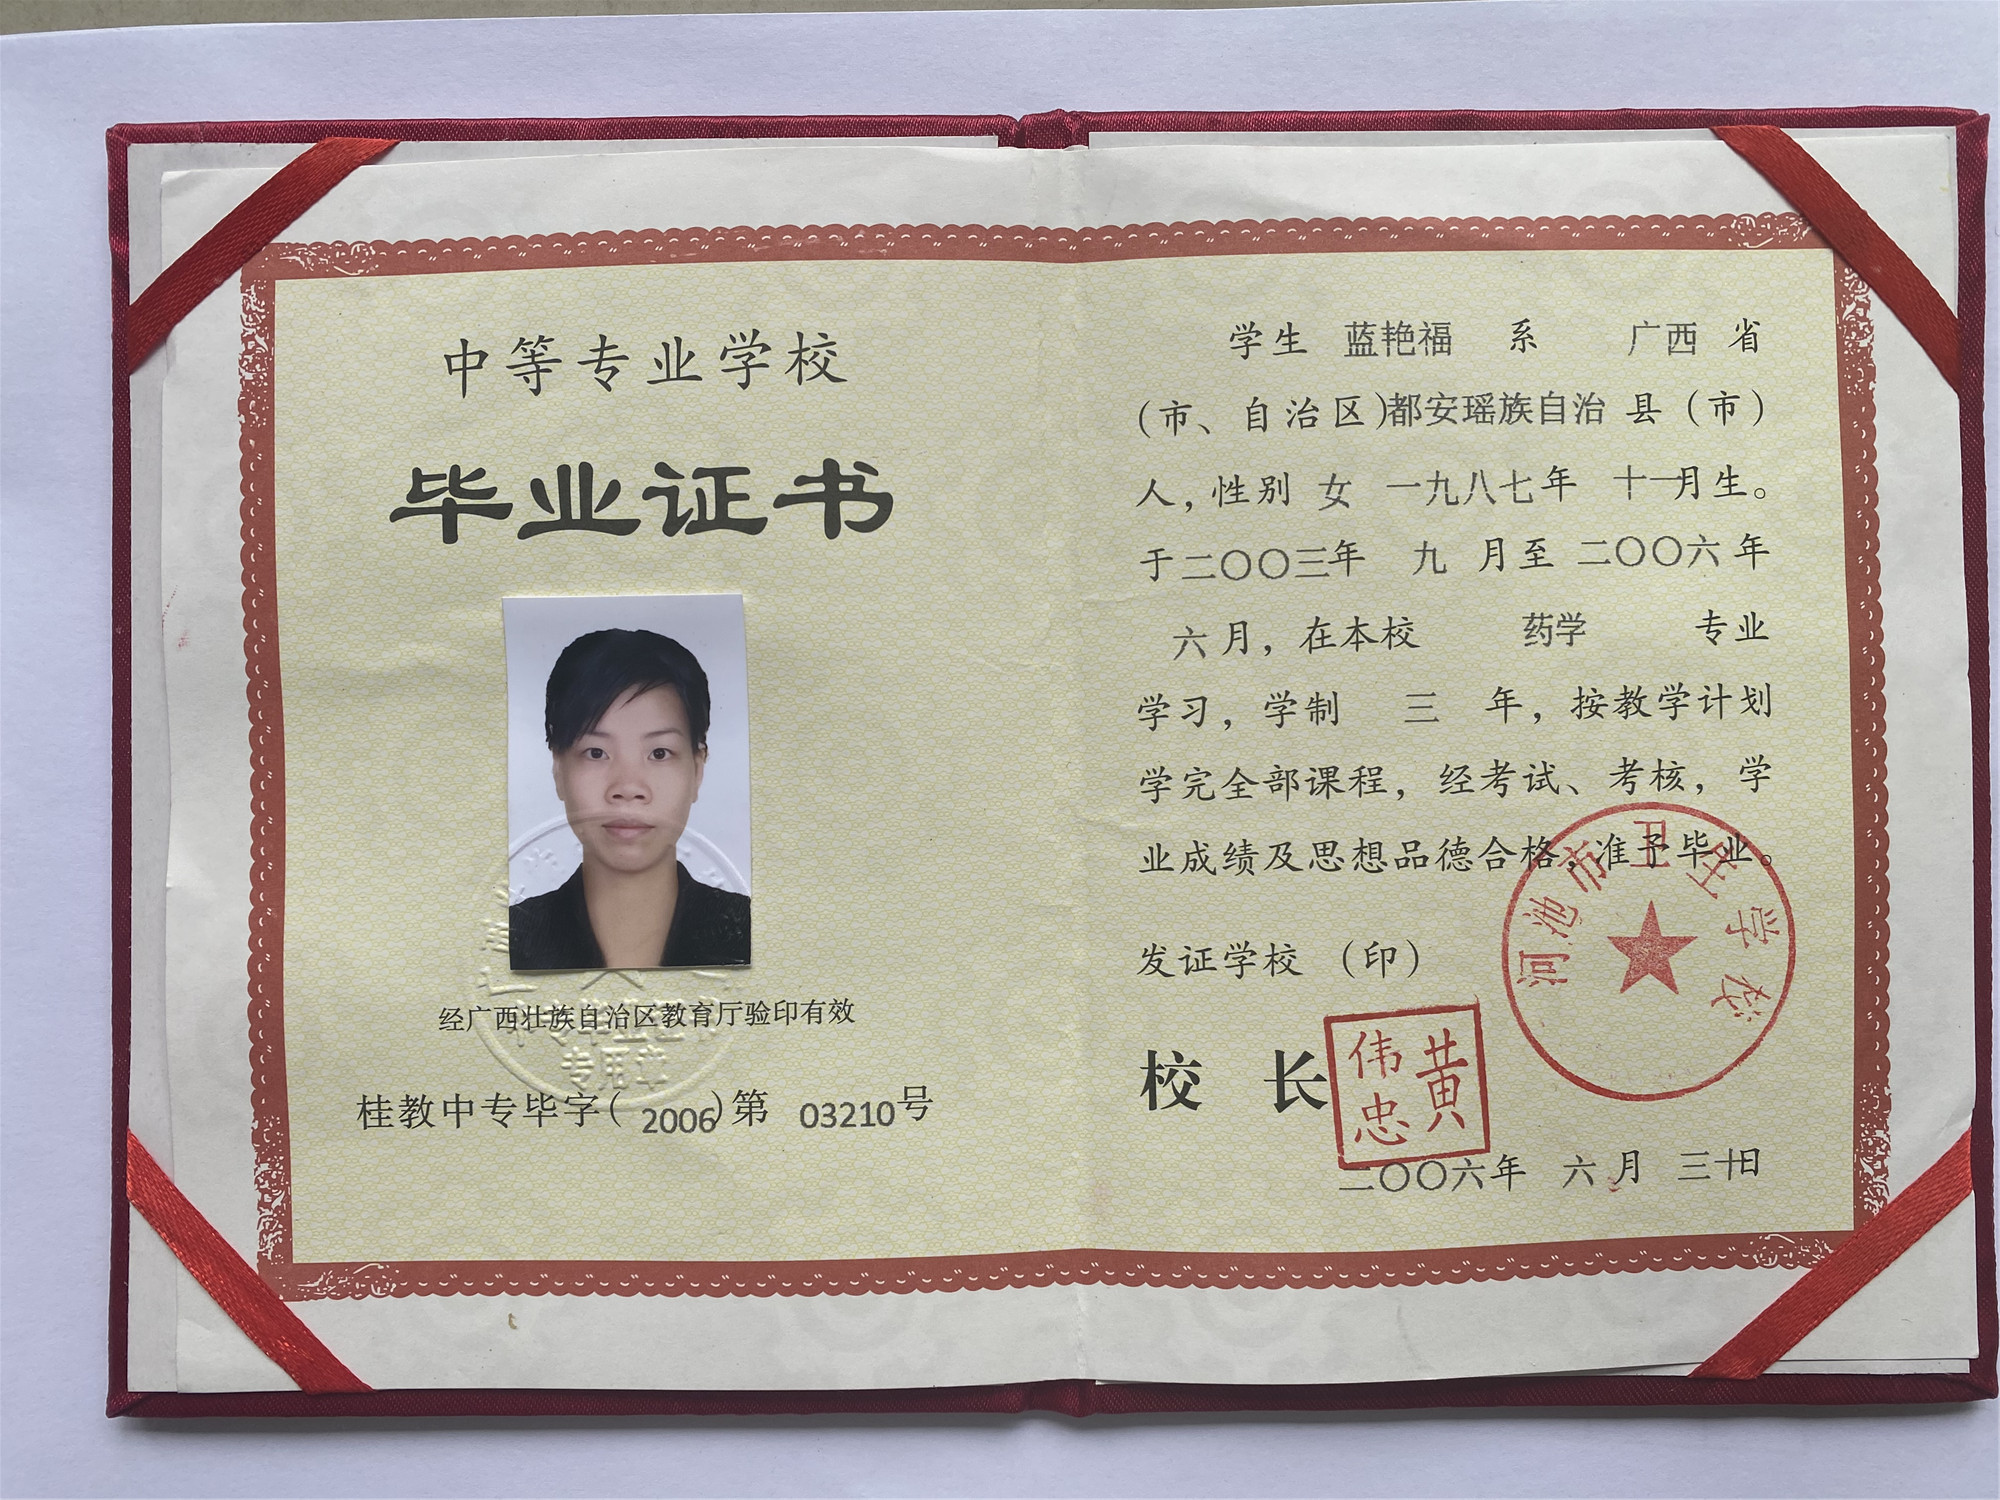 中等专业学校
毕业证书
经广西壮族自治区教育厅验印有效
专用章
桂教中专毕字(2006)第 03210号
学生 蓝艳福 系 广西 省
(市、自治区)都安瑶族自治 县(市)
人,性别 女 一九八七年 十一月生。
于二〇〇三年 九 月至 二〇〇六 年
六 月,在本校 药学 专业
学习,学制 三 年,按教学计划
学完全部课程,经考试、考核,学
业成绩及思想品德合格,准予毕业。
河池市卫生学校
发证学校 (印)
校 长
黄伟忠
二〇〇六年 六 月 三十日